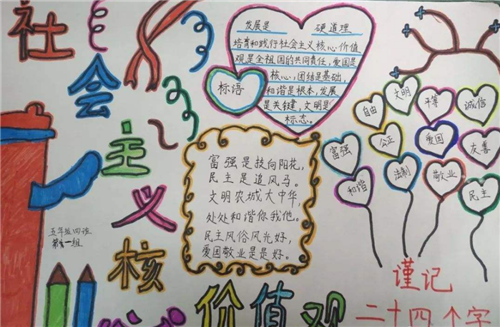 社会主义核心价值观
发展是 硬道理
培育和践行社会主义核心价值
观是全祖国的共同责任,爱国是
核心,团结是基础,
和谐是根本,发展
是关键,文明是
标志。
标语
富强是扶向阳花,
民主是追风马。
文明农城大中华,
处处和谐你我他。
民主风俗风光好,
爱国敬业是是好。
自由
文明
平等
诚信
富强
公正
爱国
友善
和谐
法制
敬业
民主
五年级四班
谨记
二十四个字